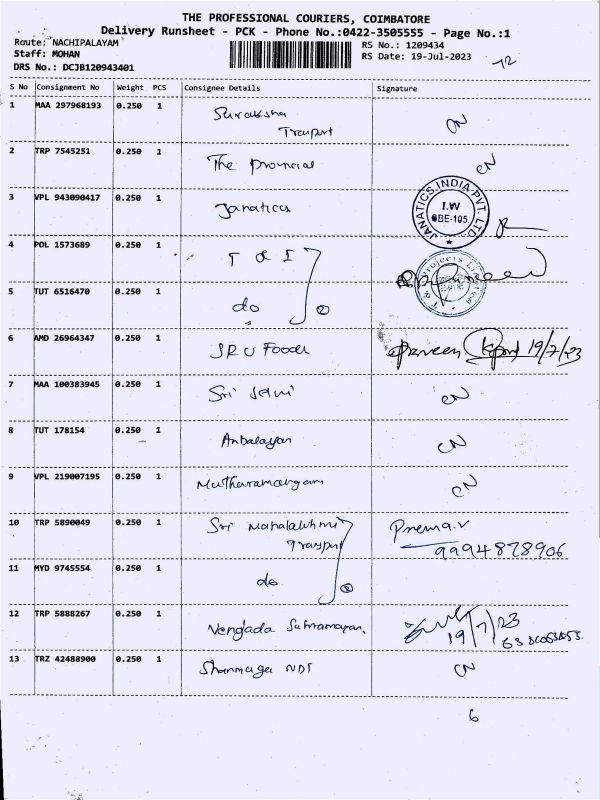 THE PROFESSIONAL COURIERS, COIMBATORE
Delivery Runsheet - PCK - Phone No.:0422-3505555 - Page No.:1
Route: NACHIPALAYAM
Staff: MOHAN
DRS No.: DCJB120943401
RS No.: 1209434
RS Date: 19-Jul-2023
S No Consignment No Weight PCS Consignee Details Signature
1 MAA 297968193 0.250 1 Suraksha Trauport CN
2 TRP 7545251 0.250 1 The provincial CN
3 VPL 943090417 0.250 1 Janatics
JANATICS INDIA PVT. LTD
I.W
OBE-105.
4 POL 1573689 0.250 1 T & I
5 TUT 6516470 0.250 1 do 2
6 AMD 26964347 0.250 1 SRU Foods Praveen 19/7/23
7 MAA 100383945 0.250 1 Sri CN
8 TUT 178154 0.250 1 Anbalayan CN
9 VPL 219007195 0.250 1 CN
10 TRP 5890049 0.250 1 Sri Mahalakhmi Prema.v
9994878906
11 MYD 9745554 0.250 1 do 2
12 TRP 5888267 0.250 1 Vengada 19/7/23
13 TRZ 42488900 0.250 1 Shanmuga CN
6